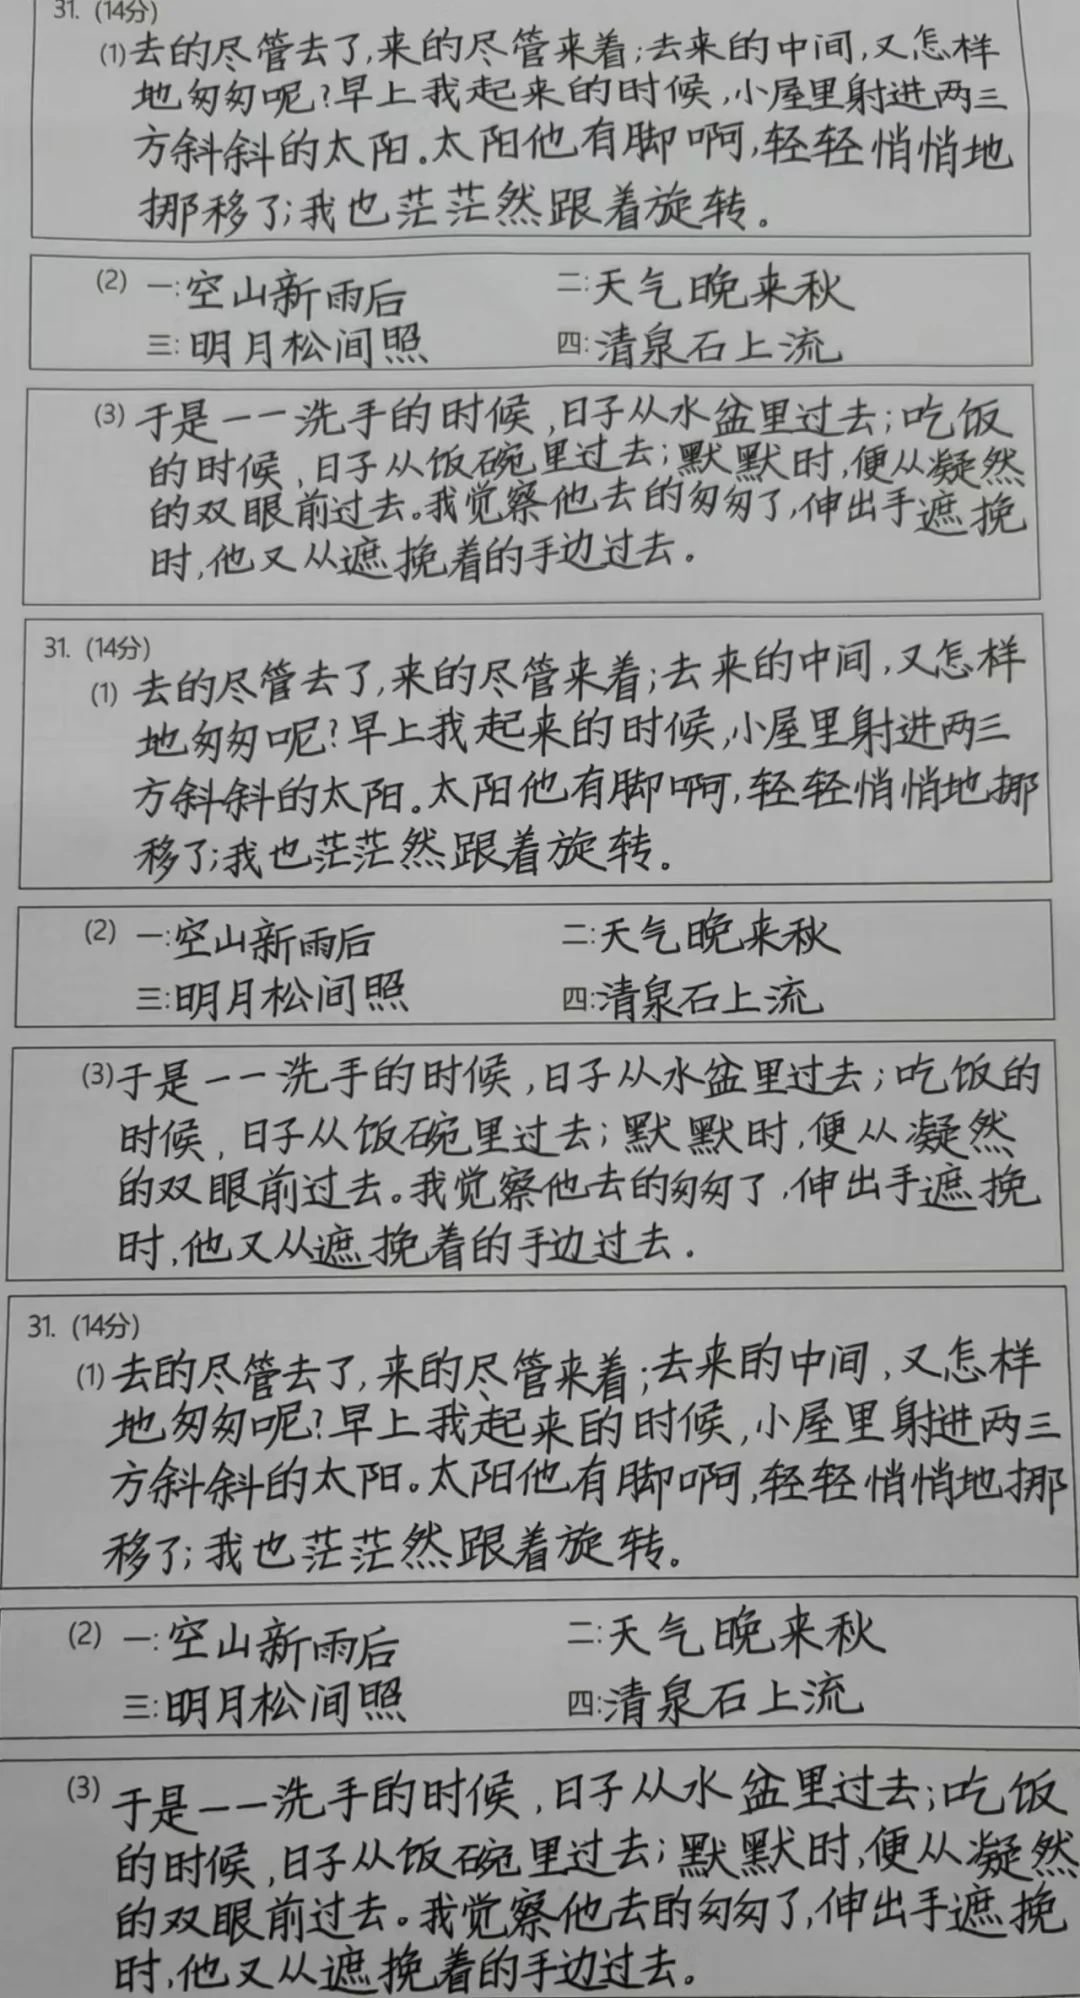 31. (14分)
(1)去的尽管去了,来的尽管来着;去来的中间,又怎样
地匆匆呢?早上我起来的时候,小屋里射进两三
方斜斜的太阳。太阳他有脚啊,轻轻悄悄地
挪移了;我也茫茫然跟着旋转。
(2) 一:空山新雨后 二:天气晚来秋
三:明月松间照 四:清泉石上流
(3) 于是——洗手的时候,日子从水盆里过去;吃饭
的时候,日子从饭碗里过去;默默时,便从凝然
的双眼前过去。我觉察他去的匆匆了,伸出手遮挽
时,他又从遮挽着的手边过去。
31. (14分)
(1) 去的尽管去了,来的尽管来着;去来的中间,又怎样
地匆匆呢?早上我起来的时候,小屋里射进两三
方斜斜的太阳。太阳他有脚啊,轻轻悄悄地挪
移了;我也茫茫然跟着旋转。
(2) 一:空山新雨后 二:天气晚来秋
三:明月松间照 四:清泉石上流
(3)于是——洗手的时候,日子从水盆里过去;吃饭的
时候,日子从饭碗里过去;默默时,便从凝然
的双眼前过去。我觉察他去的匆匆了,伸出手遮挽
时,他又从遮挽着的手边过去.
31. (14分)
(1)去的尽管去了,来的尽管来着;去来的中间,又怎样
地匆匆呢?早上我起来的时候,小屋里射进两三
方斜斜的太阳。太阳他有脚啊,轻轻悄悄地挪
移了;我也茫茫然跟着旋转。
(2) 一:空山新雨后 二:天气晚来秋
三:明月松间照 四:清泉石上流
(3) 于是——洗手的时候,日子从水盆里过去;吃饭
的时候,日子从饭碗里过去;默默时,便从凝然
的双眼前过去。我觉察他去的匆匆了,伸出手遮挽
时,他又从遮挽着的手边过去。